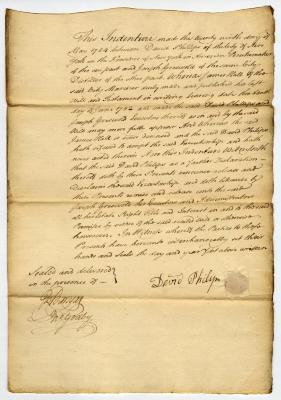 This Indenture made the twenty ninth day of
May 1784 between David Philips of the City of New
York in the Province of New York in America
of the one part and Joseph Griswold of the same City
Distiller of the other part. Whereas James Hill of the
said City Mariner duly made and published his last
Will and Testament in writing bearing date the
day of June 1782 and the said David Philips and
Joseph Griswold Executors thereof as in and by the said
Will may more fully appear And Whereas the said
James Hill is since deceased and the said David Philips
hath refused to accept the said Executorship and hath
never acted therein Now this Indenture Witnesseth
that the said David Philips as a further Declaration
thereof doth by these Presents renounce release and
Disclaim the said Executorship and doth likewise by
these Presents remise and release unto the said
Joseph Griswold his Executors and Administrators
all his Estate Right Title and Interest in and to the
Premises by virtue of the said recited Will or otherwise
howsoever. In Witness whereof the Parties to these
Presents have hereunto interchangeably set their
hands and Seals the day and year first above written
Sealed and delivered
in the presence of
David Philips